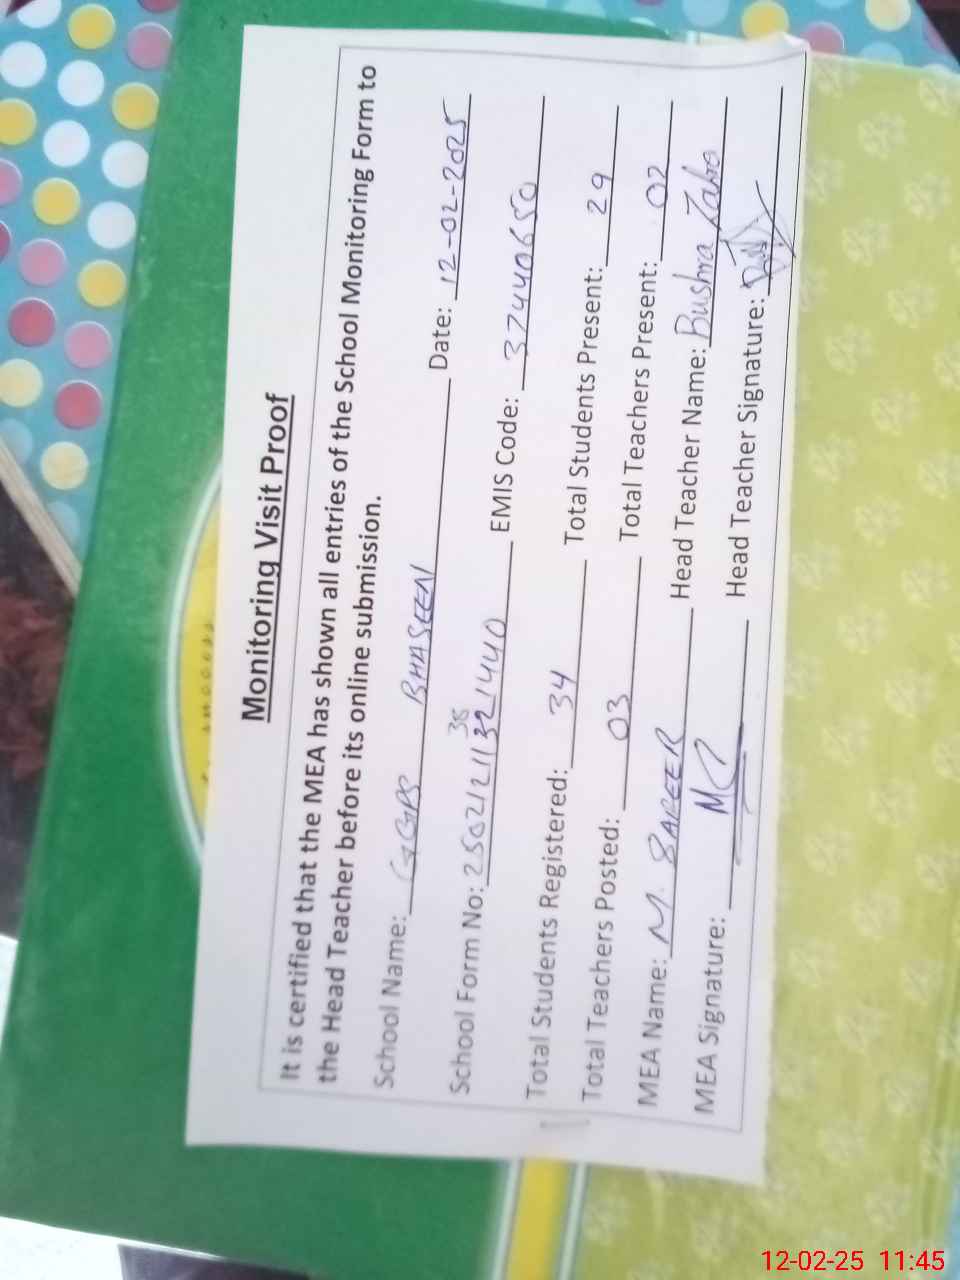 Monitoring Visit Proof
It is certified that the MEA has shown all entries of the School Monitoring Form to
the Head Teacher before its online submission.
School Name: GGPS BHASEEN Date: 12-02-2025
School Form No: EMIS Code: 37440650
Total Students Registered: 34 Total Students Present: 29
Total Teachers Posted: 03 Total Teachers Present: 02
MEA Name: M. Head Teacher Name: Bushra Zahra
MEA Signature: Head Teacher Signature:
12-02-25 11:45